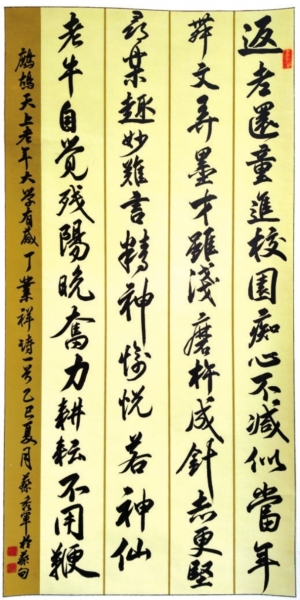 返老還童進校園痴心不減似當年
舞文弄墨才雖淺磨杵成針志更堅
尋樂趣妙難言精神愉悦若神仙
老牛自觉残陽晚奮力耕耘不用鞭
鹧鸪天上老年大学有感丁業祥诗一首乙巳夏月蔡秀軍於蔡甸